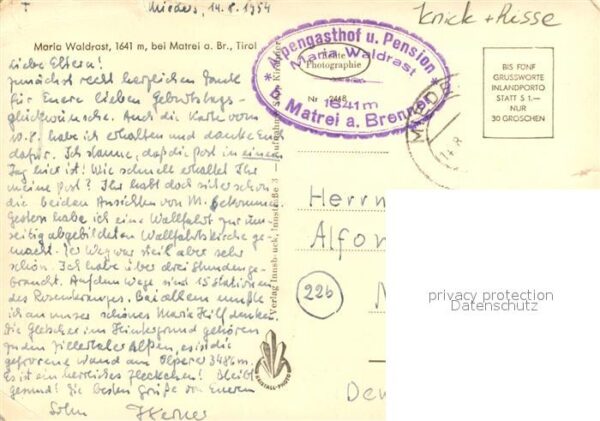 Mieders, 14.8.1954
Knick + Risse
Maria Waldrast, 1641 m, bei Matrei a. Br., Tirol
Liebe Eltern!
zunächst recht herzlichen Dank
für Euere lieben Geburtstags-
glückwünsche. Auch die Karte vom
10.8. habe ich erhalten und danke Euch
dafür. Ich staune, daß die Post in einem
Tag hier ist! Wie schnell erhaltet Ihr
meine Post? Ihr habt doch sicher schon
die beiden Ansichten von M. bekommen.
Gestern habe ich eine Wallfahrt zur um-
seitig abgebildeten Wallfahrtskirche ge-
macht. Der Weg war steil aber sehr
schön. Ich habe über drei Stunden ge-
braucht. Auf dem Wege sind 15 Stationen
des Rosenkranzes. Bei allem mußte
ich an unser schönes Maria Hilf denken.
Die Gletscher im Hintergrund gehören
zu den Zillertaler Alpen, es ist die
gefrorene Wand am Olperer 3486 m.
Es ist ein herrliches Fleckchen! Bleibt
gesund! Die besten Grüße von Euerem
Sohn Werner
Alpengasthof u. Pension
Maria Waldrast
1641 m
b. Matrei a. Brenner
Echte
Photographie
Nr. 2448
Verlag Innsbruck, Innstraße 3 — Aufnahme
RISTALL-PHOTO
BIS FÜNF
GRUSSWORTE
INLANDPORTO
STATT S 1.—
NUR
30 GROSCHEN
Herrn
Alfon
22b
privacy protection
Datenschutz